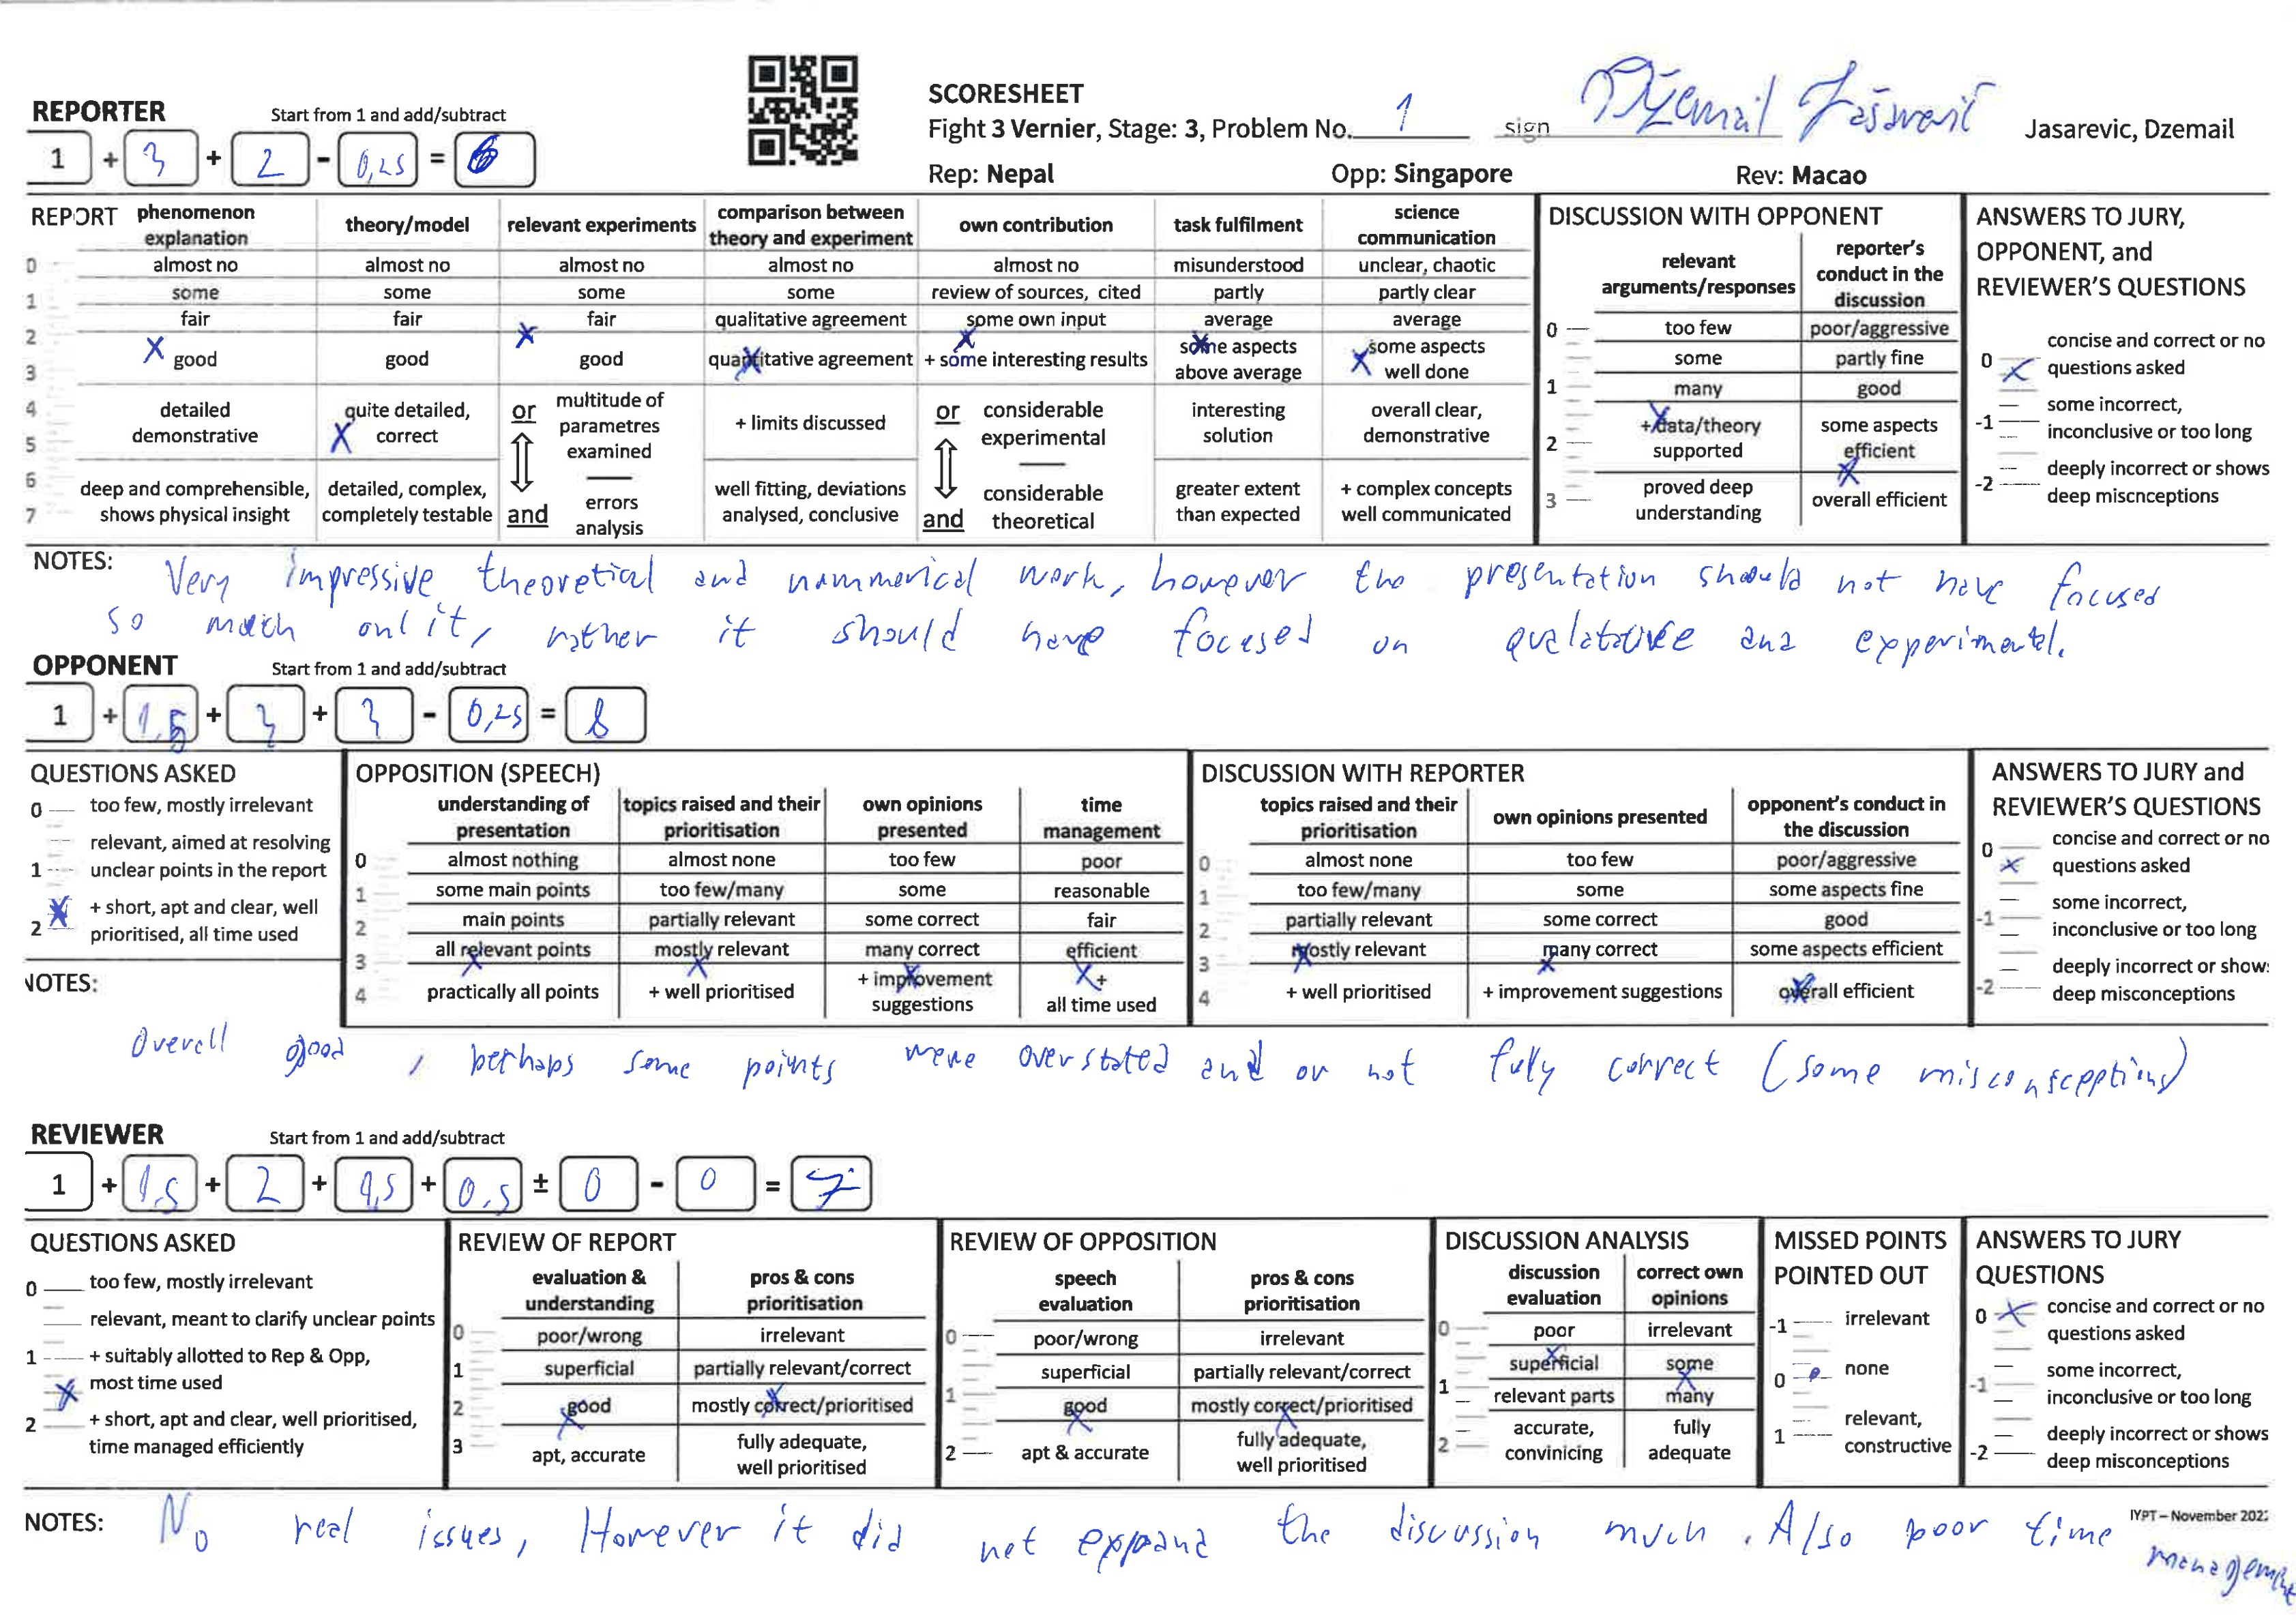 SCORESHEET
Fight 3 Vernier, Stage: 3, Problem No. 1 sign Džemail Jašarević Jasarevic, Dzemail
Rep: Nepal Opp: Singapore Rev: Macao
REPORTER Start from 1 and add/subtract
1 + 3 + 2 - 0,25 = 6
REPORT
phenomenon explanation
theory/model
relevant experiments
comparison between theory and experiment
own contribution
task fulfilment
science communication
0 almost no almost no almost no almost no almost no misunderstood unclear, chaotic
1 some some some some review of sources, cited partly partly clear
2 fair fair fair qualitative agreement some own input average average
3 good good good quantitative agreement + some interesting results some aspects above average some aspects well done
4 5 detailed demonstrative quite detailed, correct or multitude of parametres examined + limits discussed or considerable experimental interesting solution overall clear, demonstrative
6 7 deep and comprehensible, shows physical insight detailed, complex, completely testable and errors analysis well fitting, deviations analysed, conclusive and considerable theoretical greater extent than expected + complex concepts well communicated
DISCUSSION WITH OPPONENT
relevant arguments/responses
reporter's conduct in the discussion
0 too few poor/aggressive
some partly fine
1 many good
2 +data/theory supported some aspects efficient
3 proved deep understanding overall efficient
ANSWERS TO JURY,
OPPONENT, and
REVIEWER'S QUESTIONS
0 concise and correct or no questions asked
-1 some incorrect, inconclusive or too long
-2 deeply incorrect or shows deep miscnceptions
NOTES: Very impressive theoretical and nummerical work, however the presentation should not have focused
so much onl it, rather it should have focused on qualatative and experimental.
OPPONENT Start from 1 and add/subtract
1 + 1,5 + 3 + 3 - 0,25 = 8
QUESTIONS ASKED
0 too few, mostly irrelevant
relevant, aimed at resolving
1 unclear points in the report
+ short, apt and clear, well
2 prioritised, all time used
OPPOSITION (SPEECH)
understanding of presentation
topics raised and their prioritisation
own opinions presented
time management
0 almost nothing almost none too few poor
1 some main points too few/many some reasonable
2 main points partially relevant some correct fair
3 all relevant points mostly relevant many correct efficient
4 practically all points + well prioritised + improvement suggestions + all time used
DISCUSSION WITH REPORTER
topics raised and their prioritisation
own opinions presented
opponent's conduct in the discussion
0 almost none too few poor/aggressive
1 too few/many some some aspects fine
2 partially relevant some correct good
3 mostly relevant many correct some aspects efficient
4 + well prioritised + improvement suggestions overall efficient
ANSWERS TO JURY and
REVIEWER'S QUESTIONS
0 concise and correct or no questions asked
-1 some incorrect, inconclusive or too long
-2 deeply incorrect or show: deep misconceptions
NOTES:
Overall good, perhaps some points were overstated and or not fully correct (some misconsceptions)
REVIEWER Start from 1 and add/subtract
1 + 1,5 + 2 + 1,5 + 0,5 ± 0 - 0 = 7
QUESTIONS ASKED
0 too few, mostly irrelevant
relevant, meant to clarify unclear points
1 + suitably allotted to Rep & Opp,
most time used
2 + short, apt and clear, well prioritised,
time managed efficiently
REVIEW OF REPORT
evaluation & understanding
pros & cons prioritisation
0 poor/wrong irrelevant
1 superficial partially relevant/correct
2 good mostly correct/prioritised
3 apt, accurate fully adequate, well prioritised
REVIEW OF OPPOSITION
speech evaluation
pros & cons prioritisation
0 poor/wrong irrelevant
superficial partially relevant/correct
1 good mostly correct/prioritised
2 apt & accurate fully adequate, well prioritised
DISCUSSION ANALYSIS
discussion evaluation
correct own opinions
0 poor irrelevant
superficial some
1 relevant parts many
2 accurate, convinicing fully adequate
MISSED POINTS
POINTED OUT
-1 irrelevant
0 none
1 relevant, constructive
ANSWERS TO JURY
QUESTIONS
0 concise and correct or no questions asked
-1 some incorrect, inconclusive or too long
-2 deeply incorrect or shows deep misconceptions
NOTES: No real issues, However it did not exppand the discussion much. Also poor time
management
IYPT – November 202